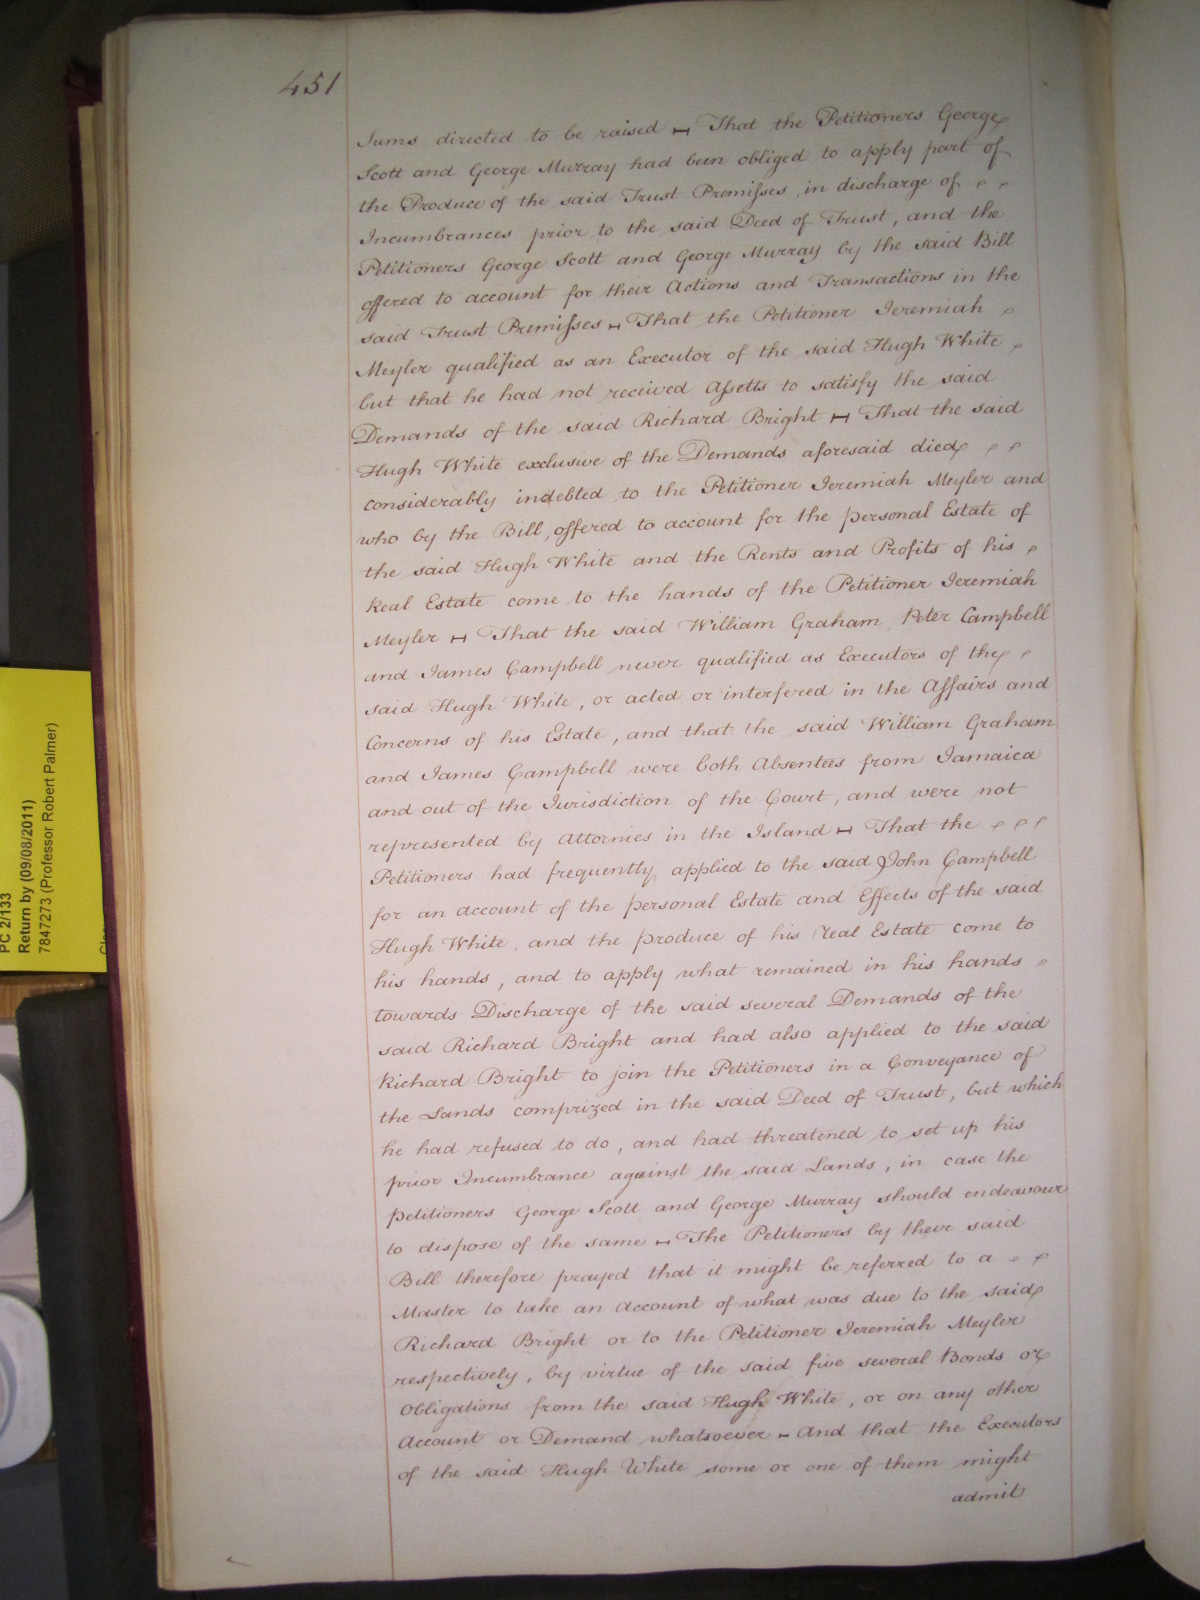 451
Sums directed to be raised — That the Petitioners George
Scott and George Murray had been obliged to apply part of
the Produce of the said Trust Premisses in discharge of
Incumbrances prior to the said Deed of Trust, and the
Petitioners George Scott and George Murray by the said Bill
offered to account for their Actions and Transactions in the
said Trust Premisses — That the Petitioner Jeremiah
Meyler qualified as an Executor of the said Hugh White
but that he had not received Assetts to satisfy the said
Demands of the said Richard Bright — That the said
Hugh White exclusive of the Demands aforesaid died
considerably indebted to the Petitioner Jeremiah Meyler and
who by the Bill, offered to account for the personal Estate of
the said Hugh White and the Rents and Profits of his
Real Estate come to the hands of the Petitioner Jeremiah
Meyler — That the said William Graham, Peter Campbell
and James Campbell never qualified as Executors of the
said Hugh White, or acted or interfered in the Affairs and
Concerns of his Estate, and that the said William Graham
and James Campbell were both Absentees from Jamaica
and out of the Jurisdiction of the Court, and were not
represented by Attornies in the Island — That the
Petitioners had frequently applied to the said John Campbell
for an account of the personal Estate and Effects of the said
Hugh White, and the produce of his real Estate come to
his hands, and to apply what remained in his hands
towards Discharge of the said several Demands of the
said Richard Bright and had also applied to the said
Richard Bright to join the Petitioners in a Conveyance of
the Lands comprized in the said Deed of Trust, but which
he had refused to do, and had threatened to set up his
prior Incumbrance against the said Lands, in case the
petitioners George Scott and George Murray should endeavour
to dispose of the same — The Petitioners by their said
Bill therefore prayed that it might be referred to a
Master to take an Account of what was due to the said
Richard Bright or to the Petitioner Jeremiah Meyler
respectively, by virtue of the said five several Bonds or
Obligations from the said Hugh White, or on any other
Account or Demand whatsoever — And that the Executors
of the said Hugh White some or one of them might
admit
PC 2/133
Return by (09/08/2011)
7847273 (Professor Robert Palmer)